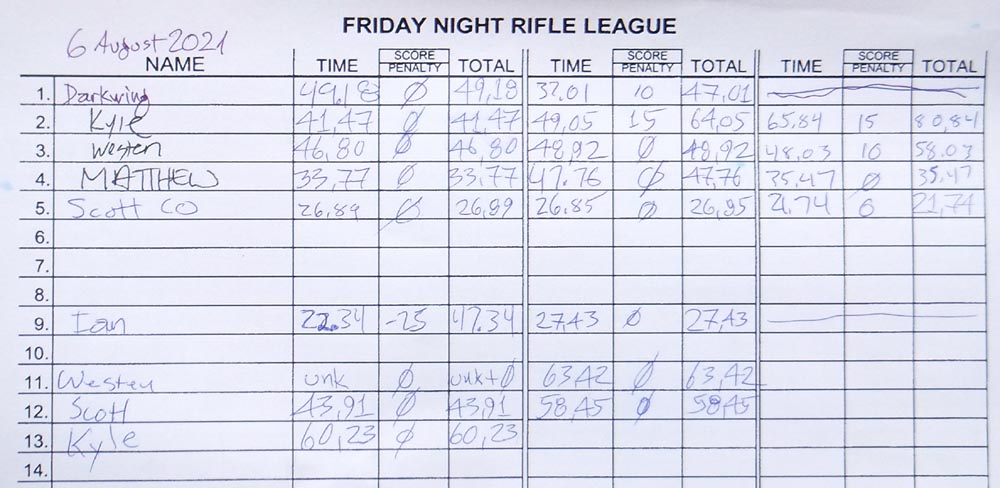 FRIDAY NIGHT RIFLE LEAGUE
6 August 2021
NAME TIME SCORE PENALTY TOTAL TIME SCORE PENALTY TOTAL TIME SCORE PENALTY TOTAL
1. Darkwing 49,18 0 49,18 37.01 10 47,01
2. Kyle 41,47 0 41,47 49,05 15 64,05 65,84 15 80,84
3. Westen 46,80 0 46,80 48,92 0 48,92 48,03 10 58,03
4. MATTHEW 33,77 0 33,77 47.76 0 47,76 35,47 0 35,47
5. Scott CO 26,89 0 26,89 26.85 0 26,85 21,74 0 21,74
6.
7.
8.
9. Ian 22.34 -25 47.34 27,43 0 27,43
10.
11. Westen unk 0 unk+0 63,42 0 63,42
12. Scott 43,91 0 43,91 58,45 0 58,45
13. Kyle 60,23 0 60,23
14.